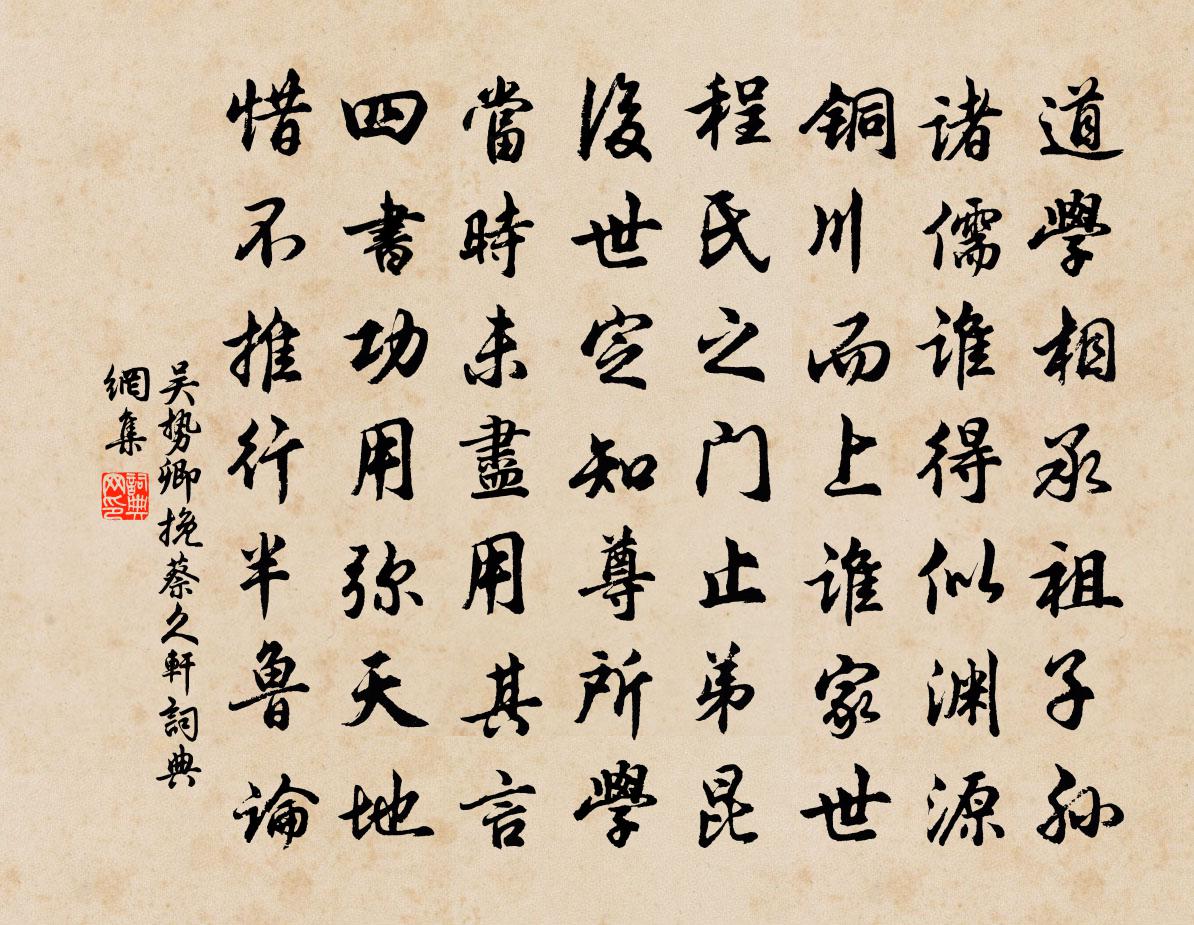 道學相承祖子孫
諸儒誰得似淵源
銅川而上誰家世
程氏之门止弟昆
後世定知尊所學
當時未盡用其言
四書功用弥天地
惜不推行半魯論
吴势卿挽蔡久軒詞典
網集
詞典
网印